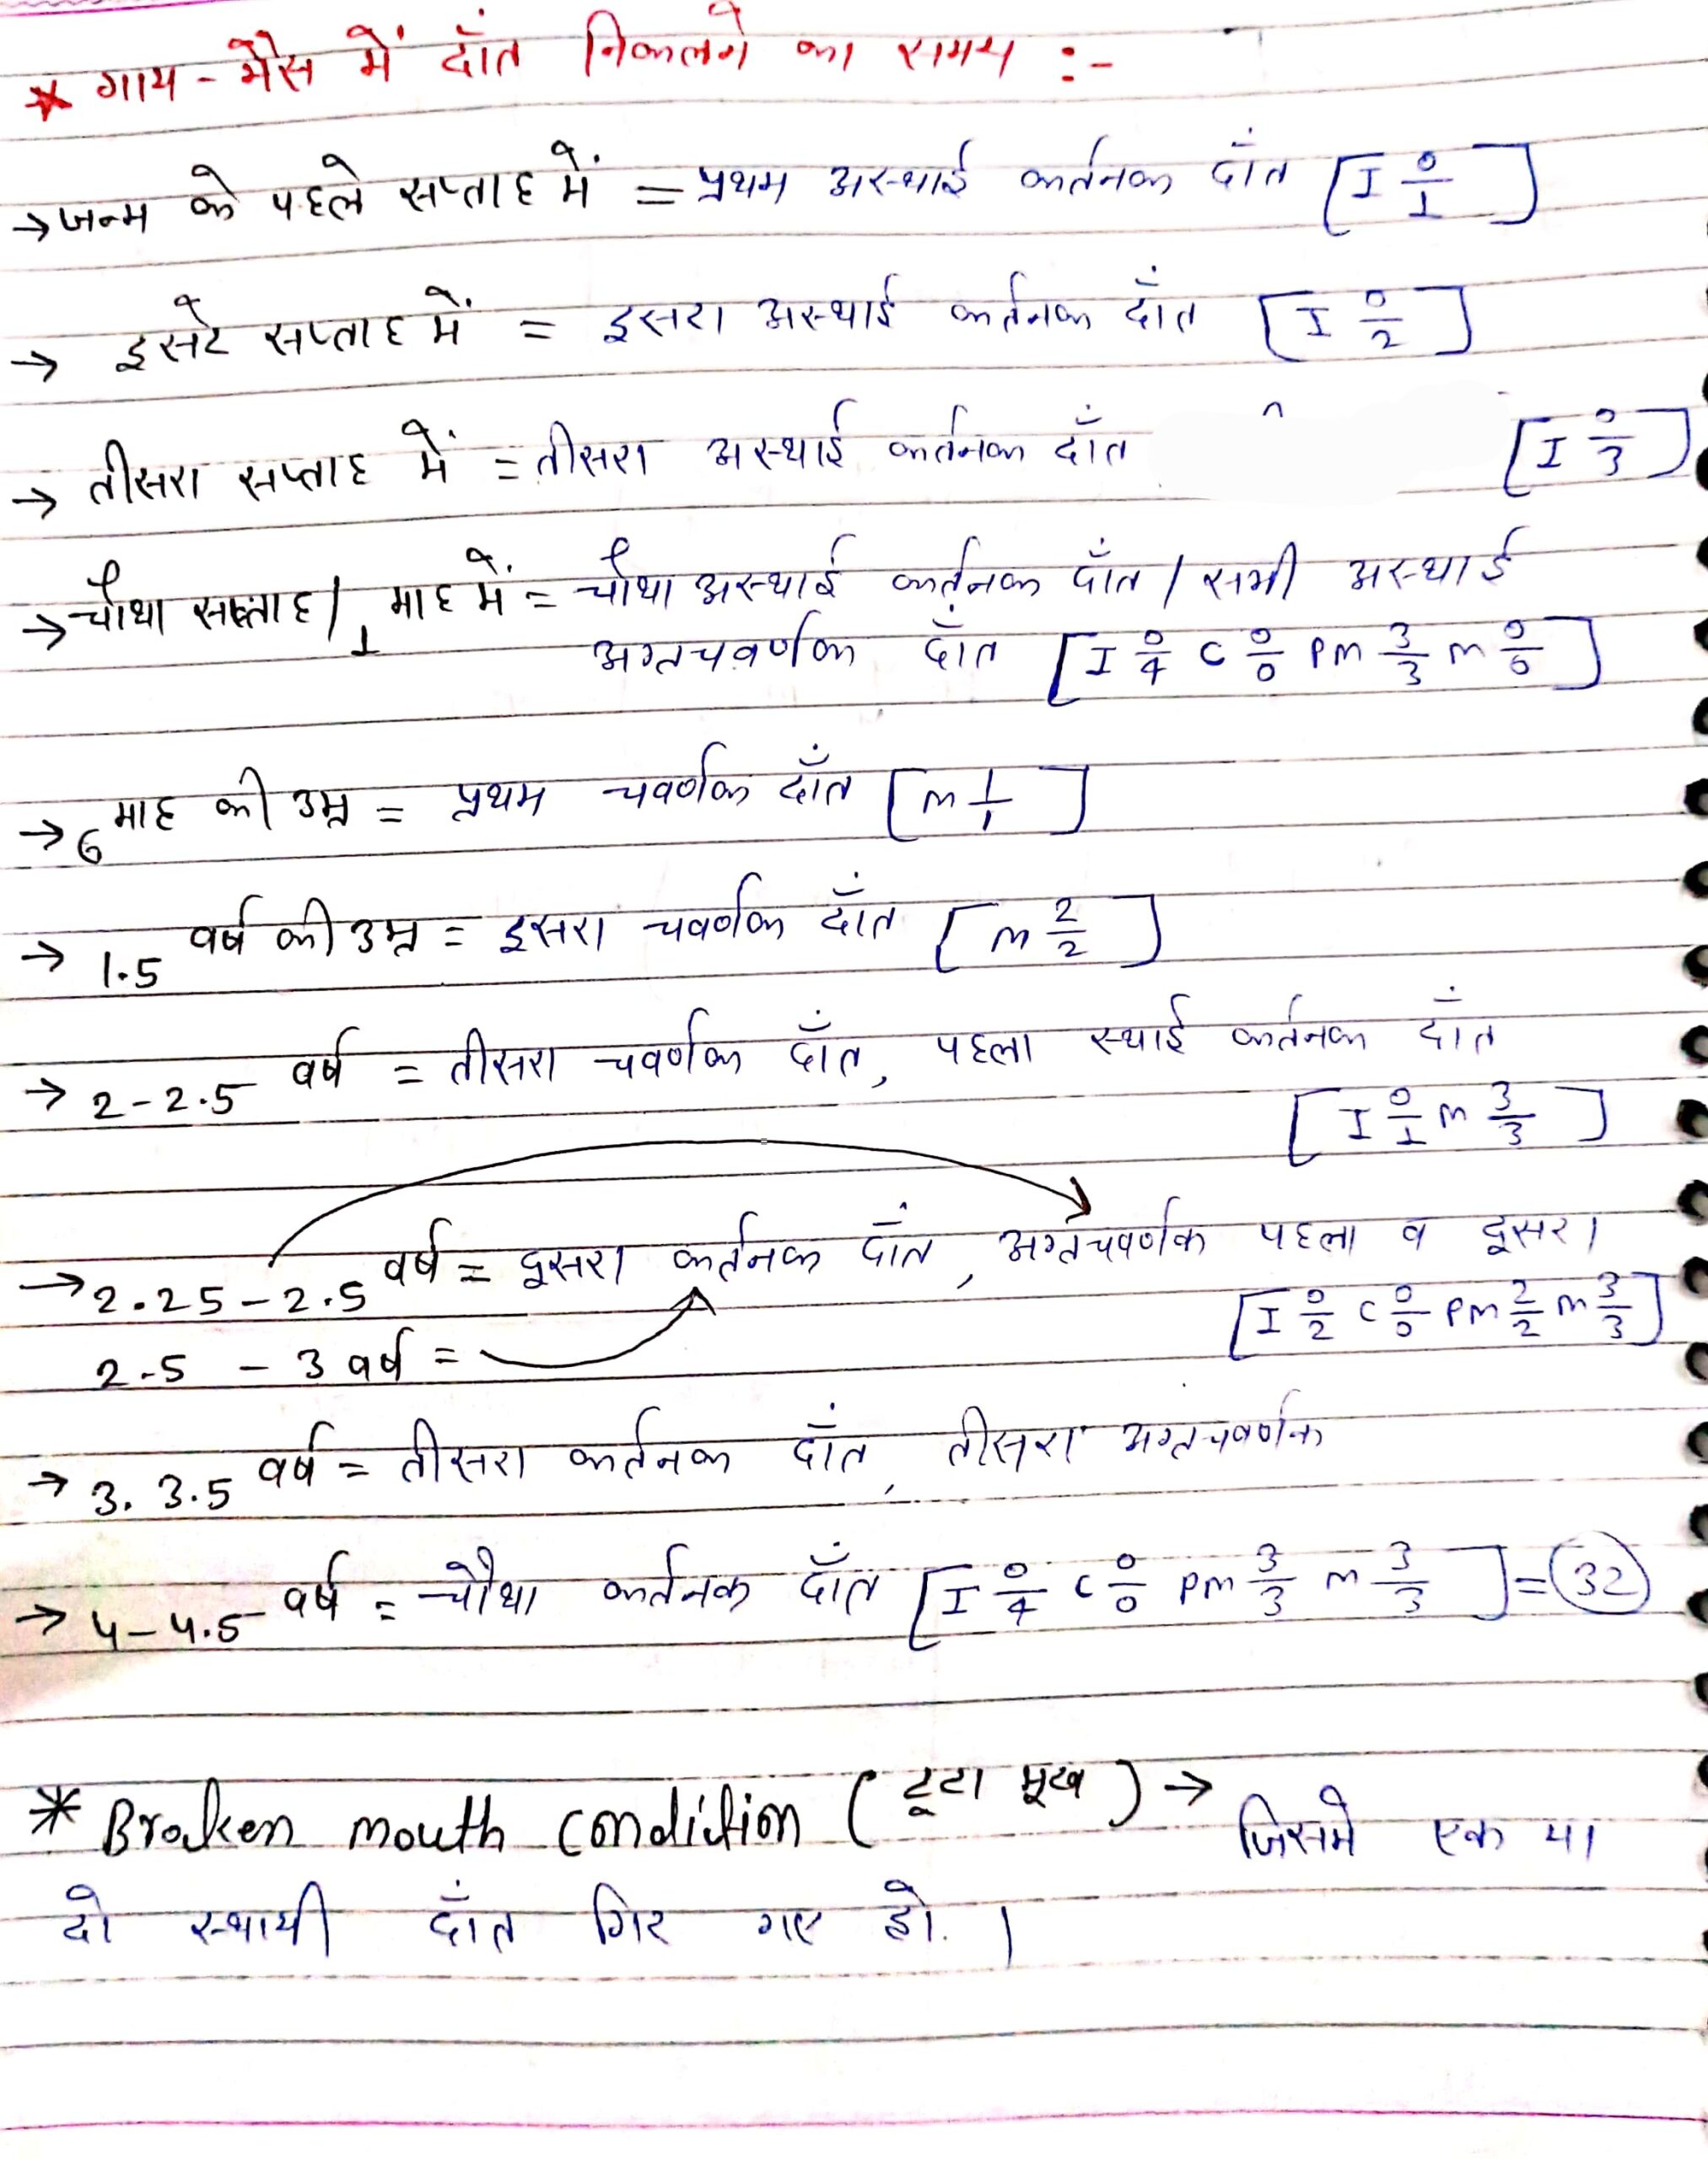 * गाय - भैस में दाँत निकलने का समय :-
→ जन्म के पहले सप्ताह में = प्रथम अस्थाई कर्तनक दाँत [I 0/1]
→ दुसरे सप्ताह में = दुसरा अस्थाई कर्तनक दाँत [I 0/2]
→ तीसरा सप्ताह में = तीसरा अस्थाई कर्तनक दाँत [I 0/3]
→ चौथा सप्ताह / 1 माह में = चौथा अस्थाई कर्तनक दाँत / सभी अस्थाई
अग्रचवर्णक दाँत [I 0/4 C 0/0 PM 3/3 M 0/0]
→ 6 माह की उम्र = प्रथम चवर्णक दाँत [M 1/1]
→ 1.5 वर्ष की उम्र = दुसरा चवर्णक दाँत [M 2/2]
→ 2 - 2.5 वर्ष = तीसरा चवर्णक दाँत, पहला स्थाई कर्तनक दाँत
[I 0/1 M 3/3]
→ 2.25 - 2.5 वर्ष = दूसरा कर्तनक दाँत, अग्रचवर्णक पहला व दूसरा
[I 0/2 C 0/0 PM 2/2 M 3/3]
2.5 - 3 वर्ष =
→ 3. 3.5 वर्ष = तीसरा कर्तनक दाँत, तीसरा अग्रचवर्णक
→ 4 - 4.5 वर्ष = चौथा कर्तनक दाँत [I 0/4 C 0/0 PM 3/3 M 3/3] = 32
* Broken mouth condition (टूटा मूख) → जिसमे एक या
दो स्थायी दाँत गिर गए हो।